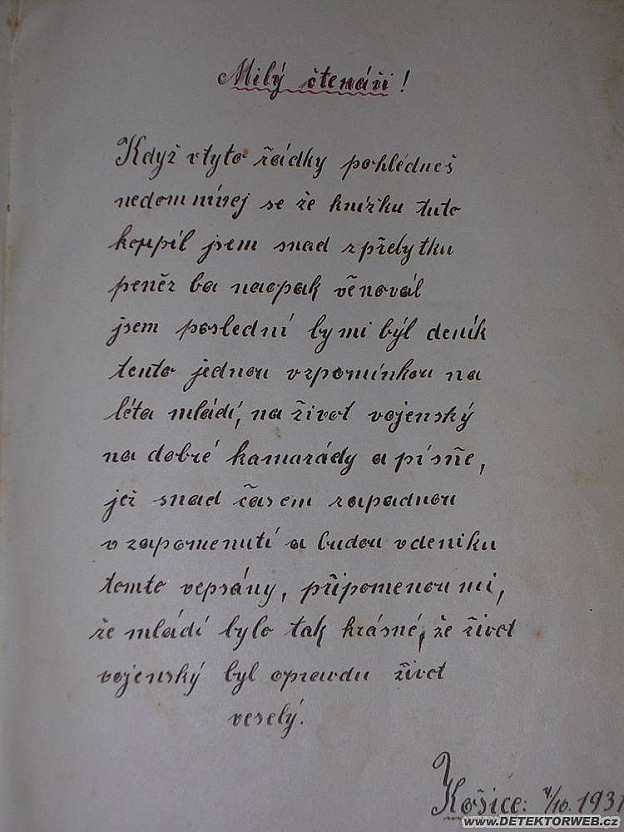 Milý čtenáři!
Když v tyto řádky pohlédneš
nedomnívej se že knížku tuto
koupil jsem snad z přebytku
peněz ba naopak věnovál
jsem poslední by mi býl deník
tento jednou vzpomínkou na
léta mládí, na život vojenský
na dobré kamarády a písňe,
jež snad časem zapadnou
v zapomenutí a budou v deniku
tomto vepsány, připomenou mi,
že mládí bylo tak krásné, že život
vojenský byl opravdu život
veselý.
Košice: /10. 1931
www.DETEKTORWEB.cz